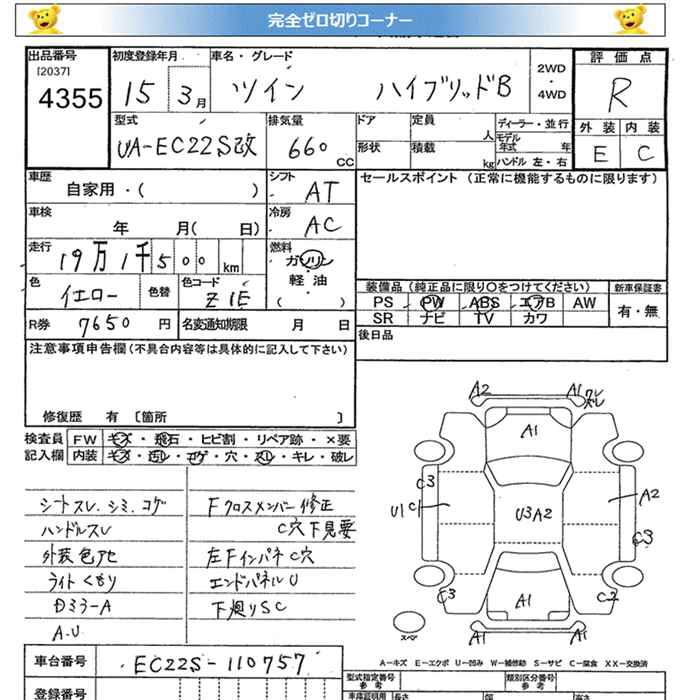 完全ゼロ切りコーナー
出品番号 初度登録年月 車名・グレード 2WD・4WD 評価点
[2037]
4355 15 3月 ツイン ハイブリッドB R
型式 排気量 ドア 定員 人 ディーラー・並行 外装 内装
UA-EC22S改 660 CC 形状 積載 kg モデル年式 年 ハンドル 左・右 E C
車歴 シフト セールスポイント(正常に機能するものに限ります)
自家用・( ) AT
車検 冷房
年 月( 日) AC
走行 燃料
19万1千500km ガソリン
軽油
( )
色 色替 色コード 装備品(純正品に限り○をつけてください) 新車保証書
イエロー Z1E PS PW ABS エアB AW 有・無
SR ナビ TV カワ
R券 7650円 名変通知期限 月 日 後日品
注意事項申告欄(不具合内容等は具体的に記入して下さい)
修復歴 有 〔箇所 〕
検査員 FW キズ・飛石・ヒビ割・リペア跡・×要
記入欄 内装 キズ・汚レ・コゲ・穴・スレ・キレ・破レ
シートスレ.シミ.コゲ
ハンドルスレ
外装色アセ
ライトくもり
Dミラ-A
A.U
Fクロスメンバー修正
C穴下見要
左FインパネC穴
エンドパネルU
下廻りSC
A2
A1
ワレ
A1
C3
U1
C1
U3A2
A2
C3
C3
A1
C2
スペア
A1
A1
A-キズ E-エクボ U-凹み W-補修跡 S-サビ C-腐食 XX-交換済
車台番号 EC22S-110757 型式指定番号 参考 類別区分番号 参考
登録番号 車庫証明用 参考 長さ 幅 高さ